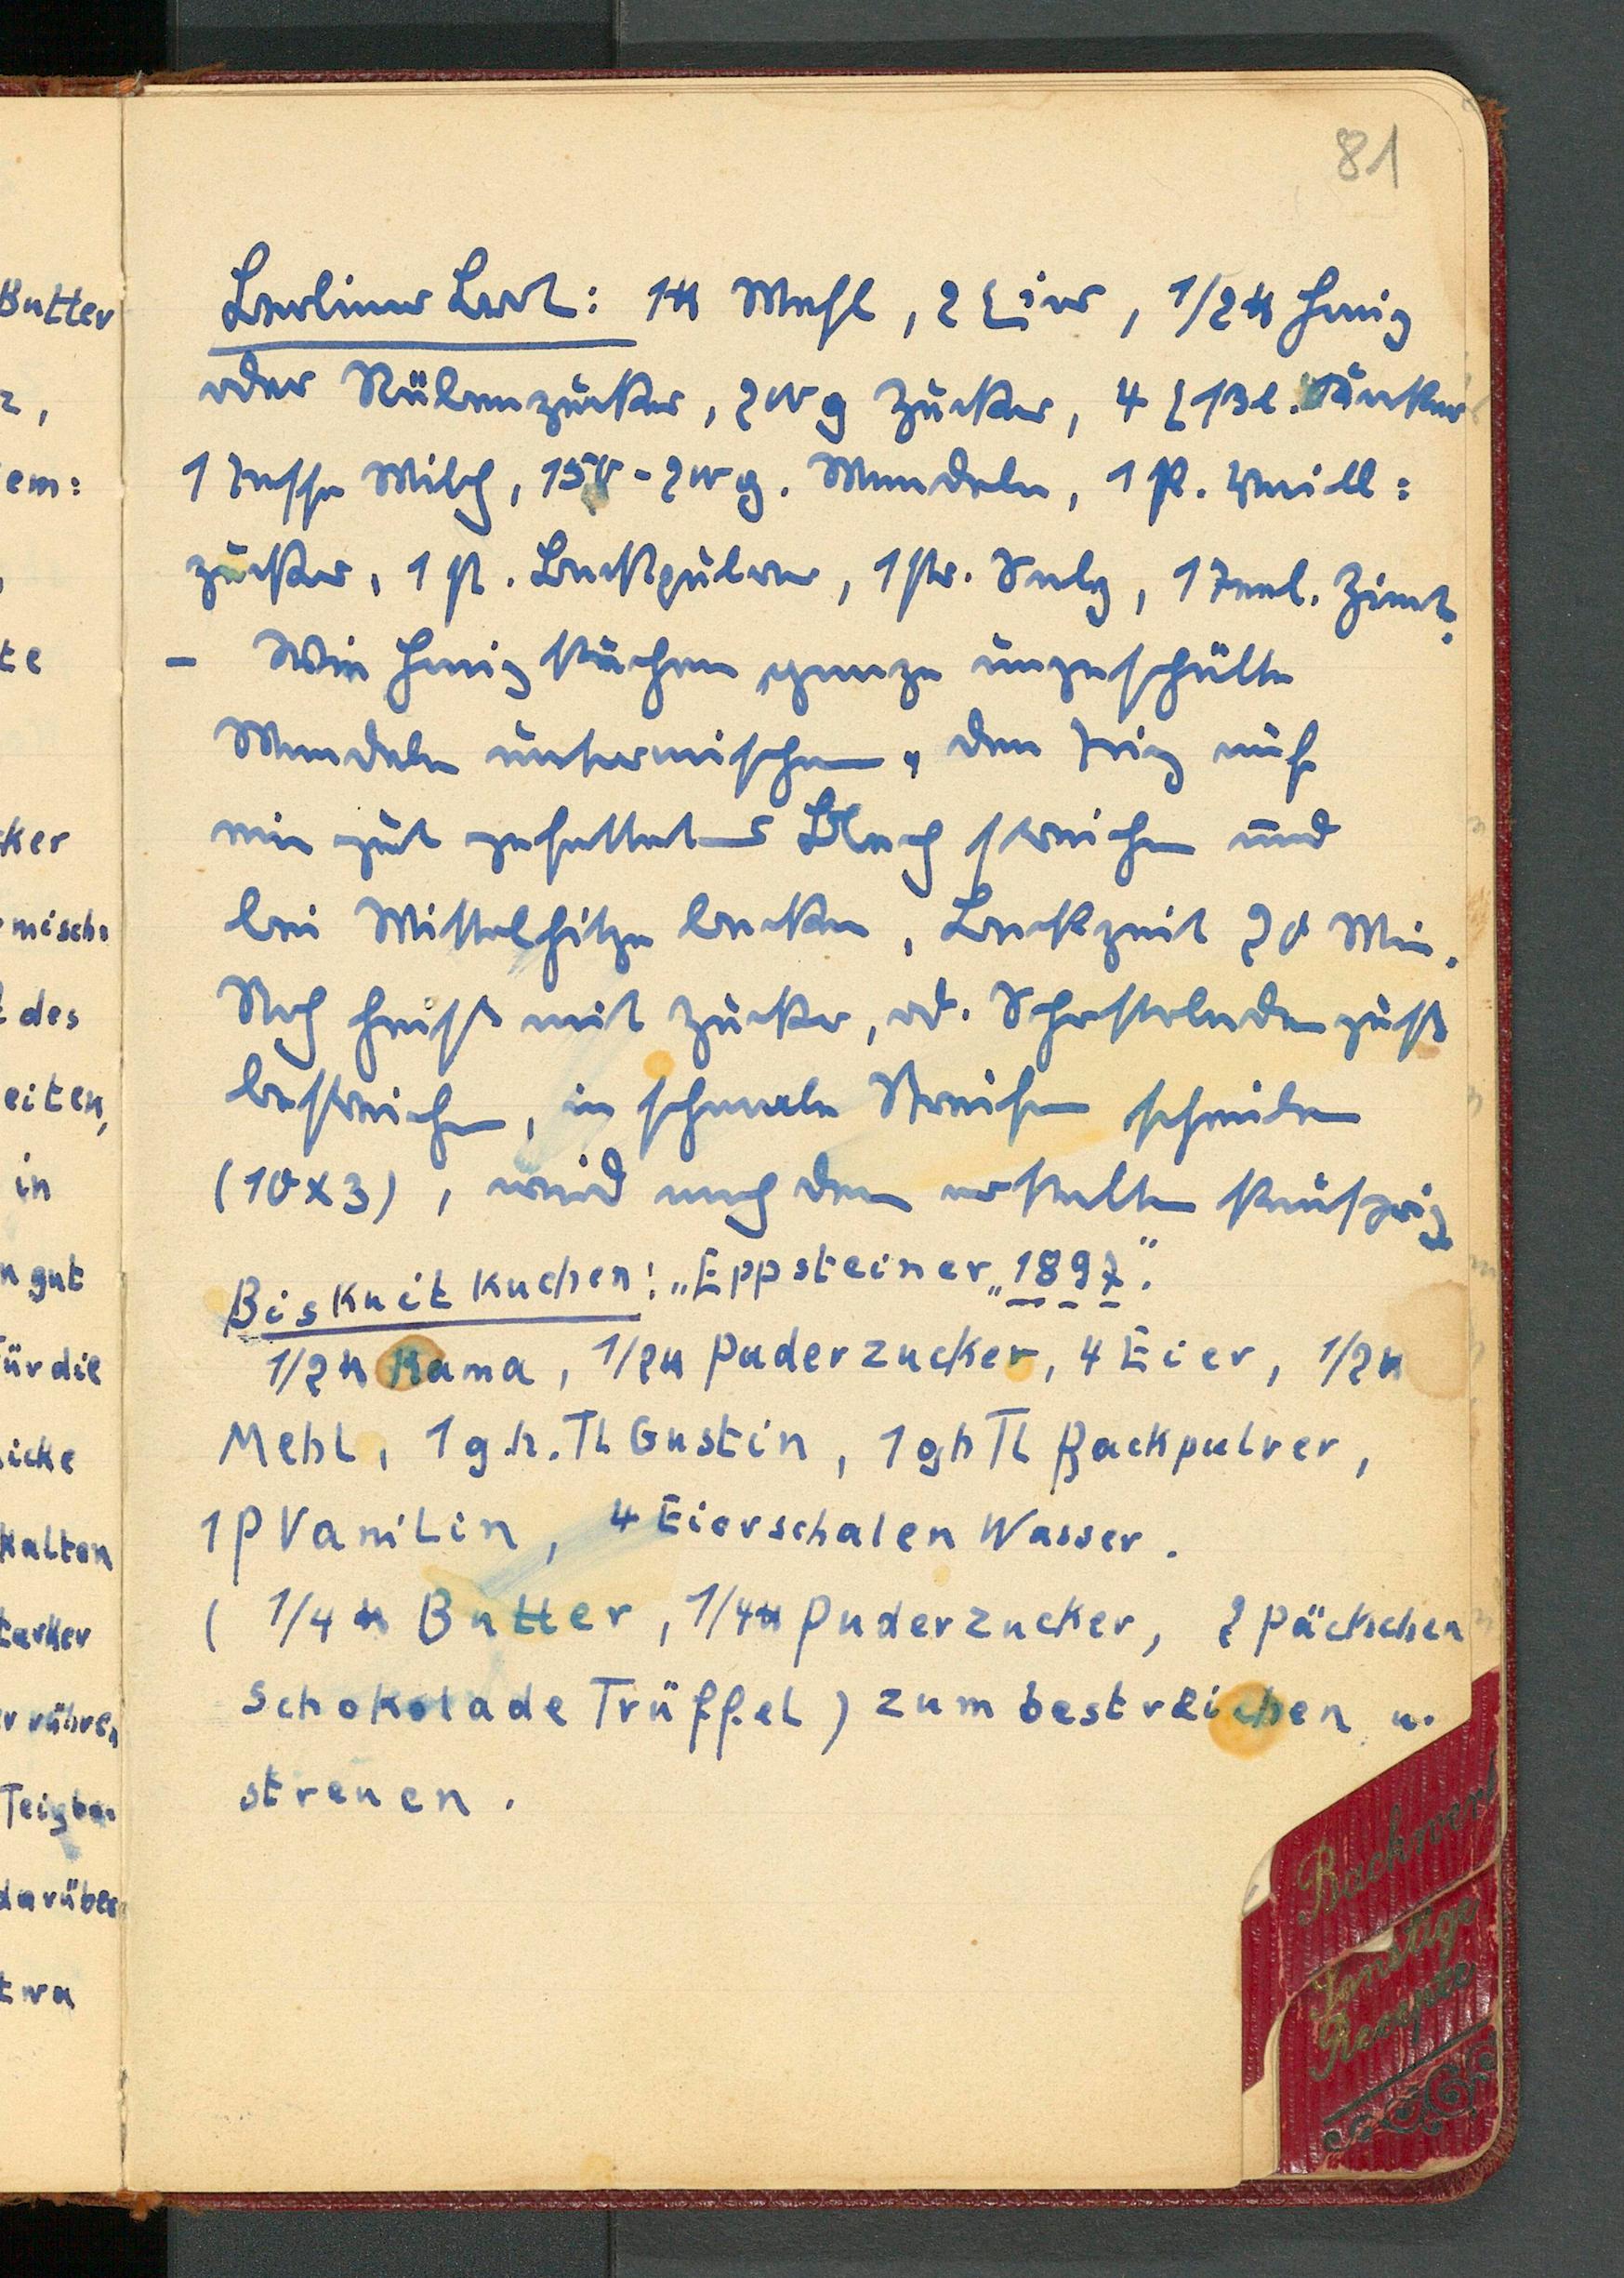 81
Berliner Brot: 1 ℔ Mehl, 2 Eier, 1/2 ℔ Honig
oder Rübenzucker, 200 g Zucker, 4 Eßl.
1 Tasse Milch, 150-200 g. Mandeln, 1 P. Vanill=
zucker, 1 P. Backpulver, 1 Pr. Salz, 1 Teel. Zimt.
- Wie Honigkuchen ganze ungeschälte
Mandeln untermischen, den Teig auf
ein gut gefettetes Blech streichen und
bei Mittelhitze backen, Backzeit 20 Min.
Noch heiß mit Zucker, od. Schokoladenguß
bestreichen, in schmale Streifen schneiden
(10x3), wird nach dem erkalten knusprig
Biskuit kuchen: „Eppsteiner„ 1897."
1/2 ℔ Rama, 1/2 ℔ Puderzucker, 4 Eier, 1/2 ℔
Mehl, 1 g.h. Tl Gustin, 1 gh Tl Backpulver,
1 P Vanilin, 4 Eierschalen Wasser.
( 1/4 ℔ Butter, 1/4 ℔ Puderzucker, 2 Päckchen
Schokolade Trüffel) zum bestreichen u.
streuen.
Backwerk
Sonstige
Rezepte
Butter
z,
em:
te
ker
misch.
des
eiten,
in
n gut
für die
icke
kalten
tarker
r rühren
Teig
darüber
twa